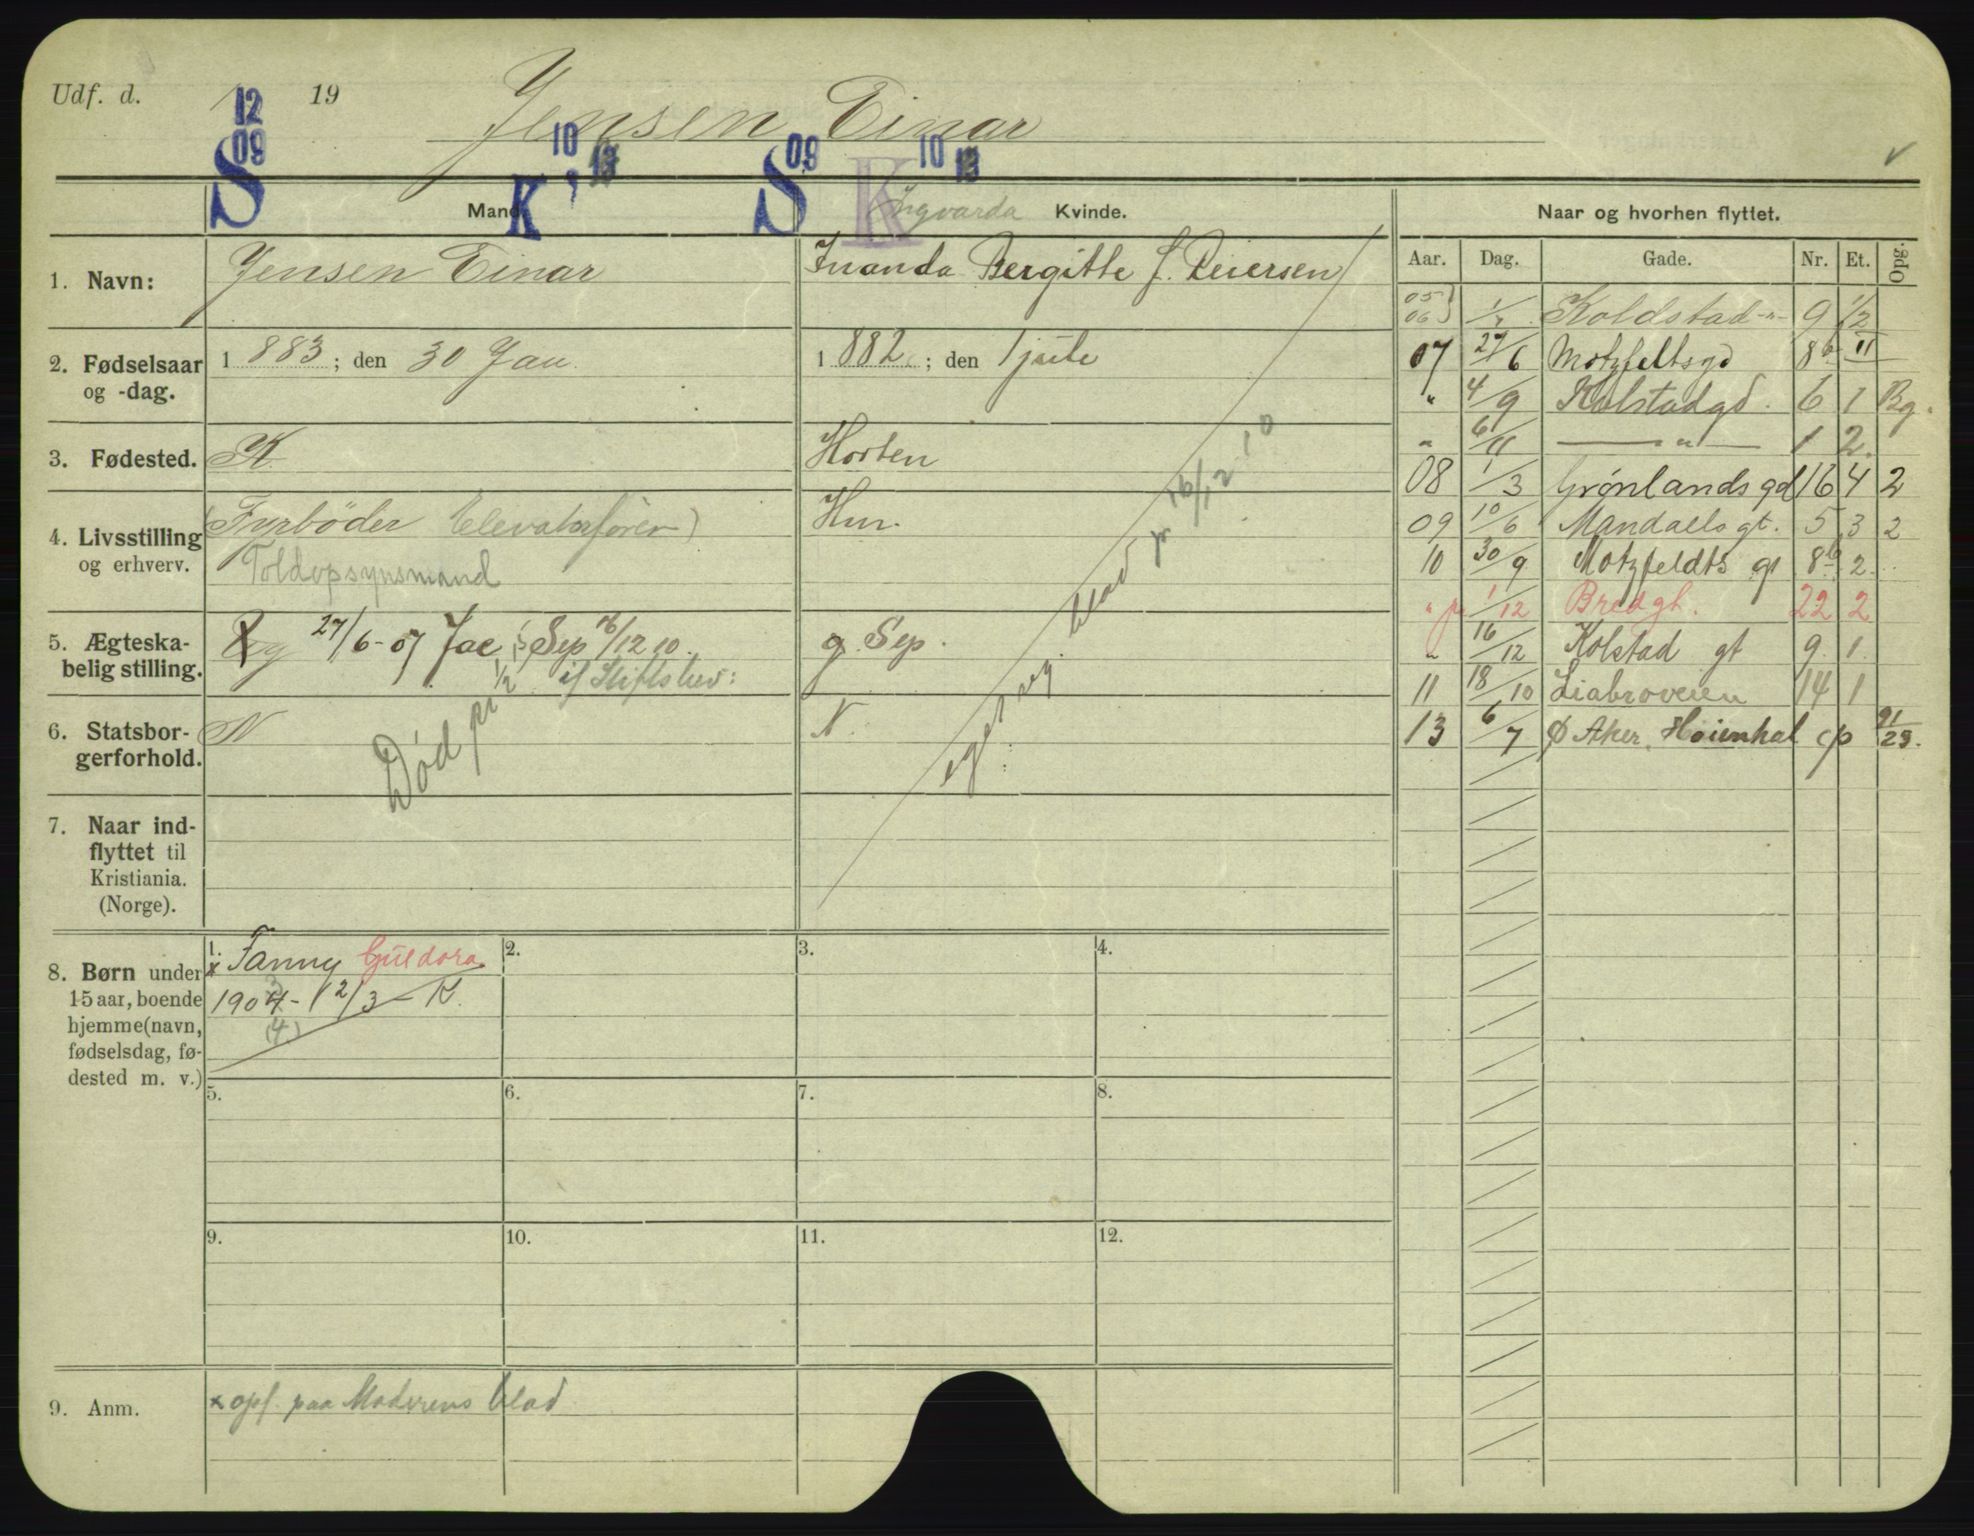 Udf. d. 19
Jensen Einar
12
09
S
10
K
09
S
10
K
Mand.
Ingvarda Kvinde.
Naar og hvorhen flyttet.
Aar. Dag. Gade. Nr. Et. Opg.
1. Navn: Jensen Einar
Bergitte f. Reiersen
2. Fødselsaar og -dag. 1883; den 30 Jan
1882; den 1 jule
3. Fødested. K
Horten
4. Livsstilling og erhverv. (Fyrbøder Elevatorfører)
Toldopsynsmand
Hur.
5. Ægteska-
belig stilling. 27/6-07 Jac, Sep 16/12 10.
if Stiftsbev:
g. Sep.
6. Statsbor-
gerforhold. N
N.
Død pr 1/2
eget reg. blad pr 16/12 10
7. Naar ind-
flyttet til
Kristiania.
(Norge).
8. Børn under
15 aar, boende
hjemme (navn,
fødselsdag, fø-
dested m. v.)
1. x Fanny Guldora
1904 - 12/3 - K.
(4)
2. 3. 4.
5. 6. 7. 8.
9. 10. 11. 12.
9. Anm. x opf. paa Moderens blad
05
06 Koldstad-"- 9 1/2
07 27/6 Motzfeltsgd 8b II
" 4/9 Kolstadgd. 6 1 Bg.
" 6/11 — " — 1 2.
08 1/3 Grønlandsgd 16 4 2
09 10/6 Mandallsgt. 5 3 2
10 30/9 Motzfeldts gt 8b 2.
" pr 1/12 Bredgt. 22 2
" 16/12 Kolstad gt 9. 1.
11 18/10 Liabroveien 14 1
13 6/7 Ø Aker, Høienhal c/o 21/23.